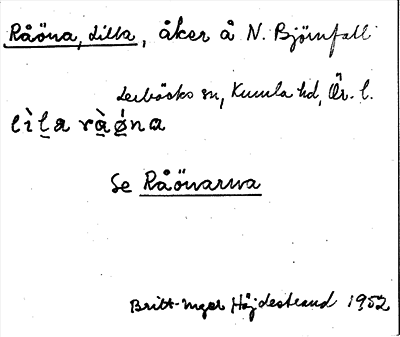 Råöna, Lilla, åker å N. Björnfall
Lerbäcks sn, Kumla hd, Ör. l.
lìla ràǿna
Se Råönarna
Britt-Inger Höjdestrand 1952